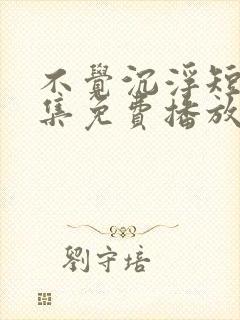 不覺沉浮短
集免費播放
劉守培